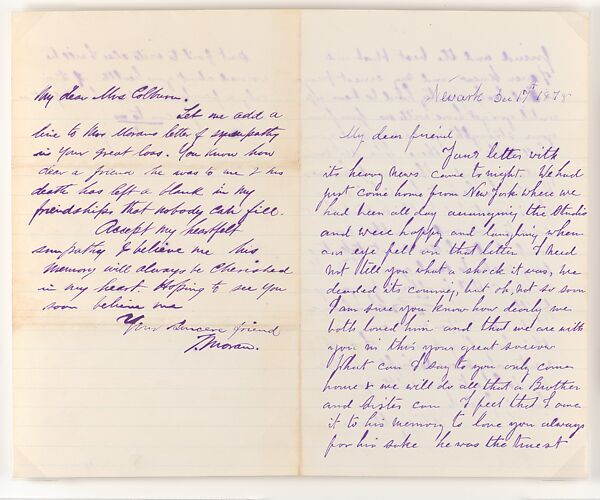 My dear Mrs Colburn.
Let me add a
line to Mrs Morans letter of sympathy
in your great loss. You know how
dear a friend he was to me & his
death has left a blank in my
friendships that nobody can fill.
Accept my heartfelt
sympathy & believe me his
memory will always be cherished
in my heart. Hoping to see you
soon believe me
Your Sincere friend
T. Moran.
Newark Dec 17th 1878
My dear friend
Your letter with
its heavy news came to night. We had
just come home from New York where we
had been all day arranging the Studio
and were happy and laughing when
our eye fell on that letter I need
not tell you what a shock it was, we
dreaded its coming, but oh not so soon
I am sure you know how dearly we
both loved him and that we are with
you in this your great sorrow
What can I say to you only come
home & we will do all that a Brother
and Sister can I feel that I owe
it to his memory to love you always
for his sake he was the truest